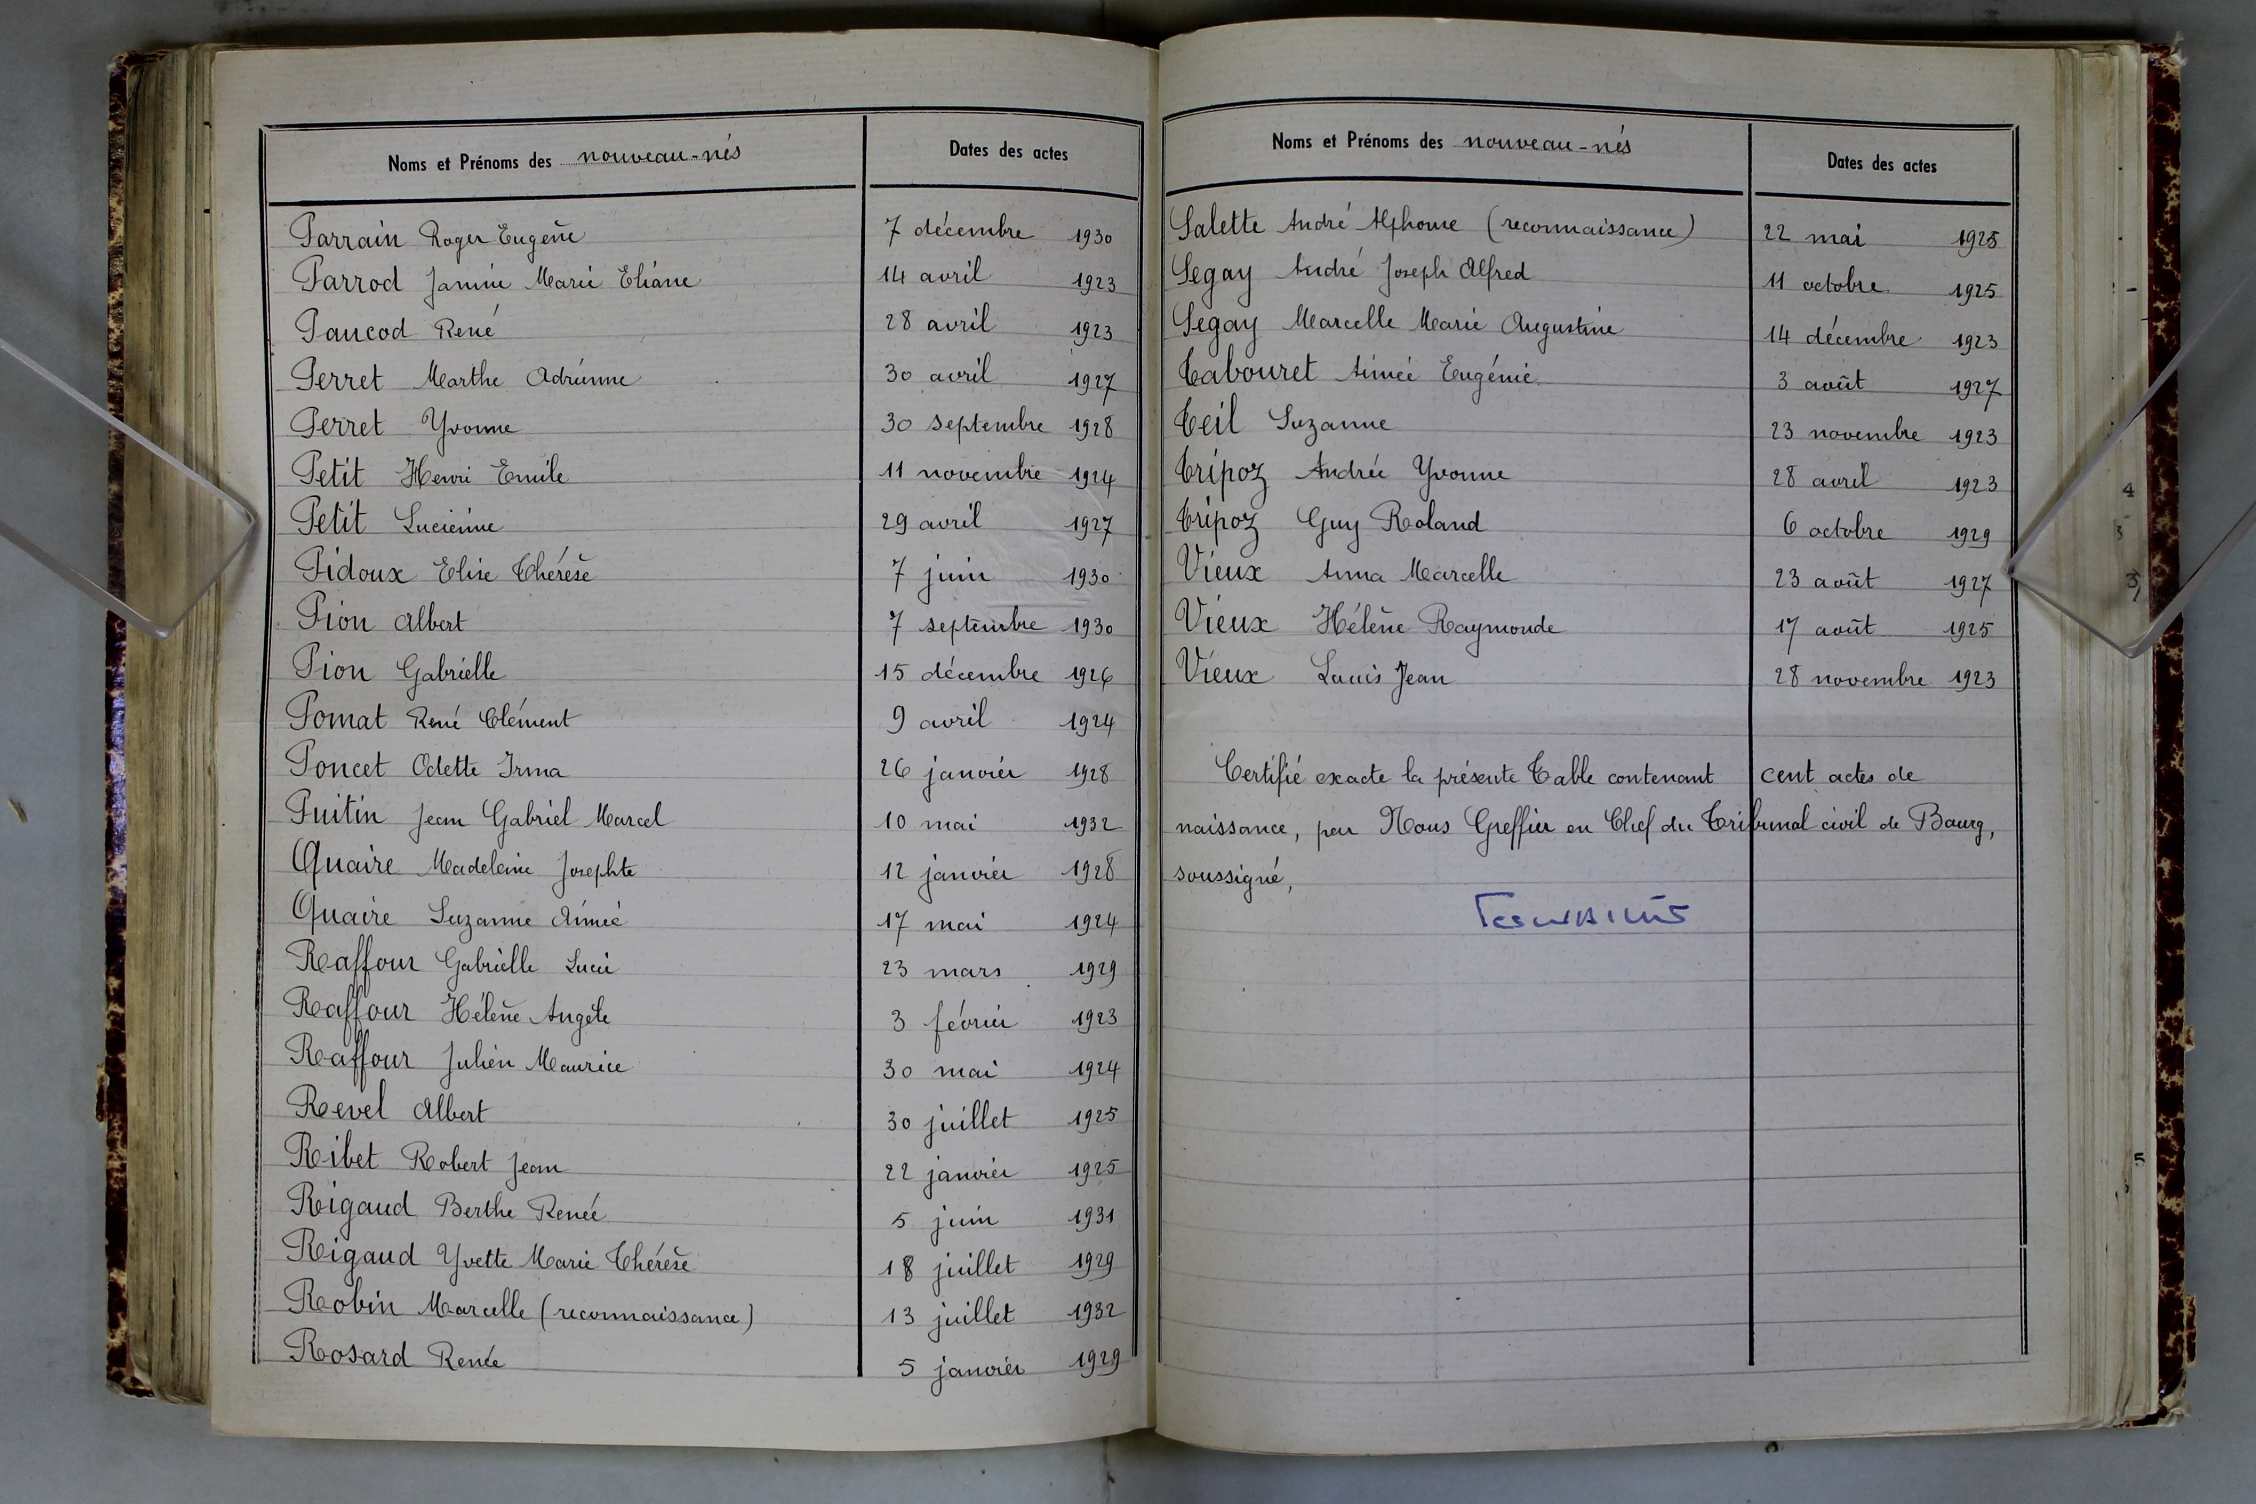 Noms et Prénoms des nouveau-nés Dates des actes
Parrain Roger Eugène 7 décembre 1930
Parrod Janine Marie Eliane 14 avril 1923
Paucod René 28 avril 1923
Perret Marthe Adrienne 30 avril 1927
Perret Yvonne 30 septembre 1928
Petit Henri Emile 11 novembre 1924
Petit Lucienne 29 avril 1927
Pidoux Elise Thérèse 7 juin 1930
Pion Albert 7 septembre 1930
Pion Gabrielle 15 décembre 1926
Pomat René Clément 9 avril 1924
Poncet Odette Irma 26 janvier 1928
Puitin Jean Gabriel Marcel 10 mai 1932
Quaire Madeleine Josephte 12 janvier 1928
Quaire Suzanne Aimée 17 mai 1924
Raffour Gabrielle Lucie 23 mars 1929
Raffour Hélène Angèle 3 février 1923
Raffour Julien Maurice 30 mai 1924
Revel Albert 30 juillet 1925
Ribet Robert Jean 22 janvier 1925
Rigaud Berthe Renée 5 juin 1931
Rigaud Yvette Marie Thérèse 18 juillet 1929
Robin Marcelle (reconnaissance) 13 juillet 1932
Rosard Renée 5 janvier 1929
Noms et Prénoms des nouveau-nés Dates des actes
Salette André Alphonse (reconnaissance) 22 mai 1925
Segay André Joseph Alfred 11 octobre 1925
Segay Marcelle Marie Augustine 14 décembre 1923
Tabouret Aimée Eugénie 3 août 1927
Teil Suzanne 23 novembre 1923
Tripoz Andrée Yvonne 28 avril 1923
Tripoz Guy Roland 6 octobre 1929
Vieux Anna Marcelle 23 août 1927
Vieux Hélène Raymonde 17 août 1925
Vieux Louis Jean 28 novembre 1923
Certifié exacte la présente Table contenant cent actes de
naissance, par Nous Greffier en Chef du Tribunal civil de Bourg,
soussigné,